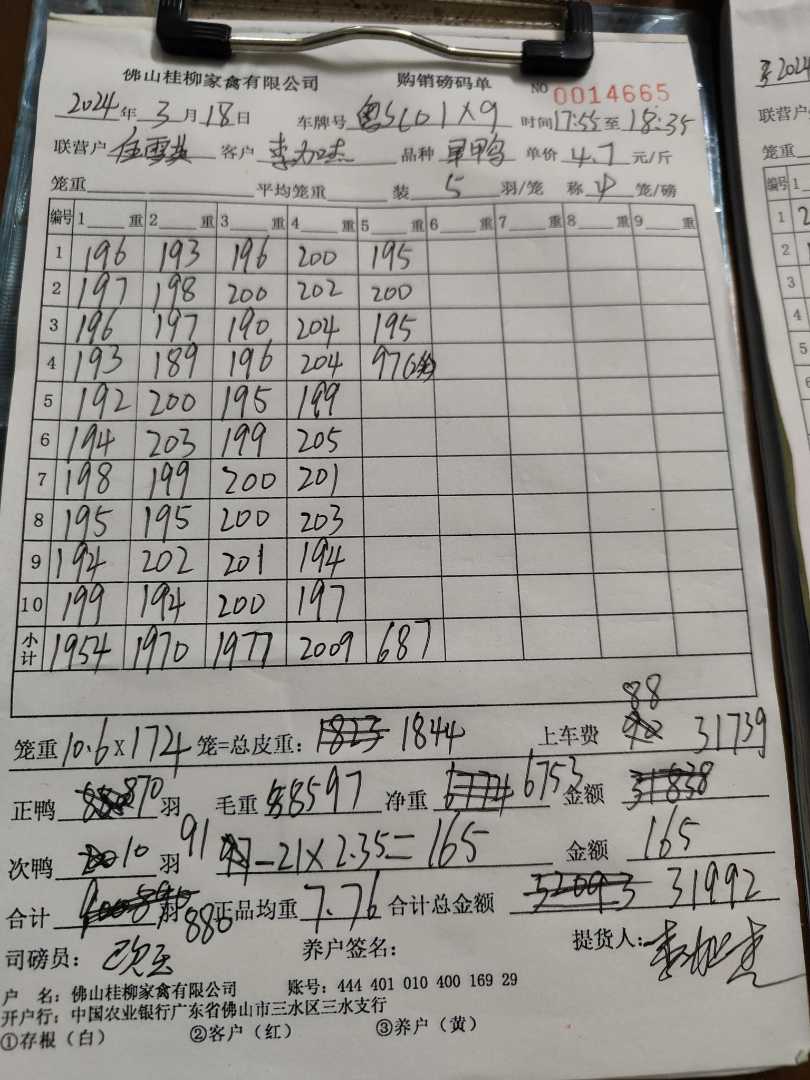 佛山桂柳家禽有限公司 购销磅码单 NO 0014665
2024年3月18日 车牌号 时间17:55至18:35
联营户 客户 李加杰 品种 单价4.7元/斤
笼重 平均笼重 装5羽/笼 称4笼/磅
编号 1 重 2 重 3 重 4 重 5 重 6 重 7 重 8 重 9 重
1 196 193 196 200 195
2 197 198 200 202 200
3 196 197 190 204 195
4 193 189 196 204 97
5 192 200 195 199
6 194 203 199 205
7 198 199 200 201
8 195 195 200 203
9 194 202 201 194
10 199 194 200 197
小计 1954 1970 1977 2009 687
88
笼重10.6×174笼=总皮重：1823 1844 上车费 31739
正鸭 870羽 毛重 8597 净重 6774 6753 金额 31838
次鸭 10羽 91 -21×2.35=165 金额 165
合计 羽 880 正品均重7.76 合计总金额 32093 31992
司磅员： 养户签名： 提货人：李加杰
户 名：佛山桂柳家禽有限公司 账号：444 401 010 400 169 29
开户行：中国农业银行广东省佛山市三水区三水支行
①存根（白） ②客户（红） ③养户（黄）
2024
联营户
笼重
编号 1
1
2
3
4
5